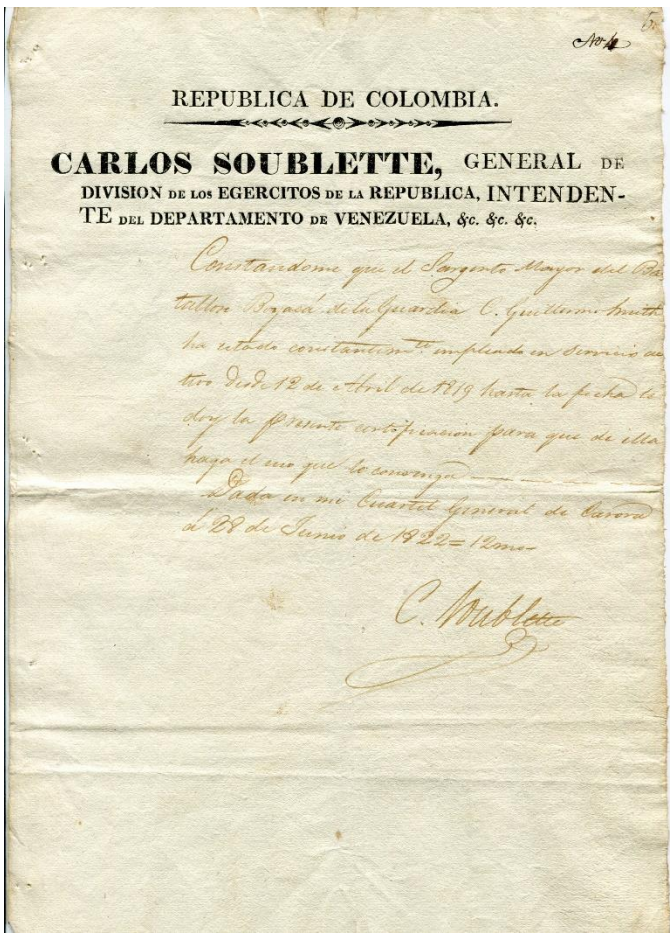 5.
No 4
REPUBLICA DE COLOMBIA.
CARLOS SOUBLETTE, GENERAL DE
DIVISION DE LOS EGERCITOS DE LA REPUBLICA, INTENDEN-
TE DEL DEPARTAMENTO DE VENEZUELA, &c. &c. &c.
Constandome que el Sargento Mayor del Ba
tallon Boyacá de la Guardia C. Guillermo Smith
ha estado constantemte. empleado en servicio ac
tivo desde 12 de Abril de 1819 hasta la fecha le
doy la presente certificacion para que de ella
haga el uso que le convenga
Dada en mi Cuartel General de Carora
á 28 de Junio de 1822 = 12mo-
C. Soublette